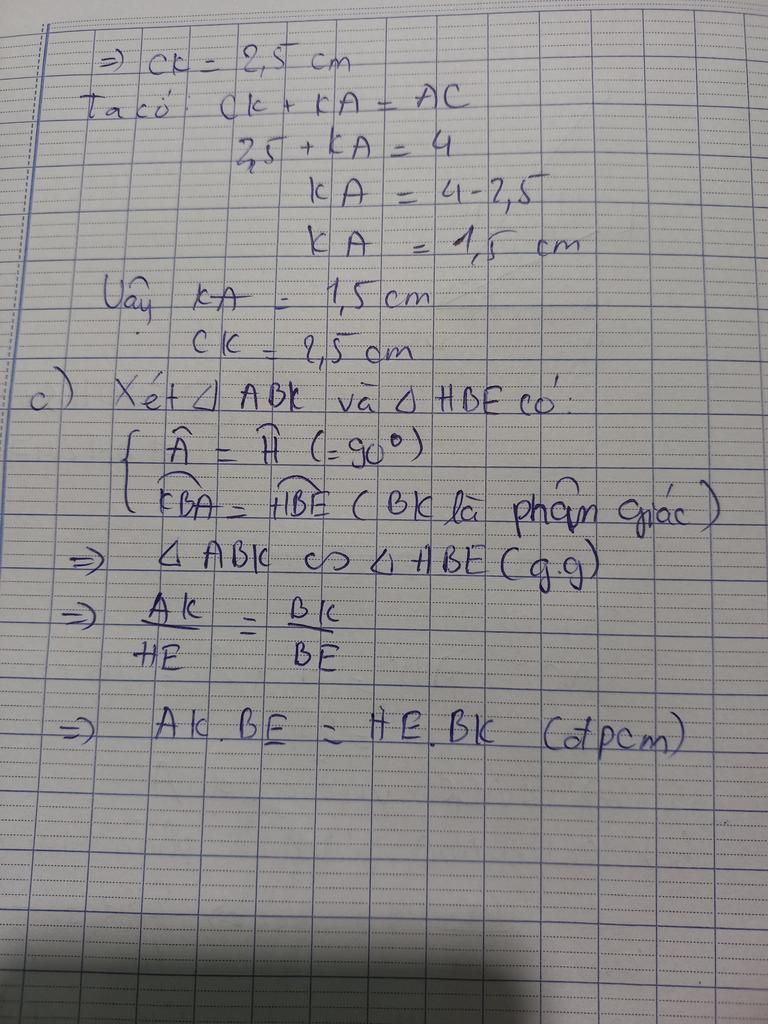 => CK = 2,5 cm
Ta có: CK + KA = AC
2,5 + KA = 4
KA = 4-2,5
KA = 1,5 cm
Vậy KA = 1,5 cm
CK = 2,5 cm
c) Xét Δ ABK và Δ HBE có:
{ Â = Ĥ (= 90°)
{ \widehat{KBA} = \widehat{HBE} (BK là phân giác)
=> Δ ABK ∽ Δ HBE (g.g)
=> AK/HE = BK/BE
=> AK.BE = HE.BK (đpcm)